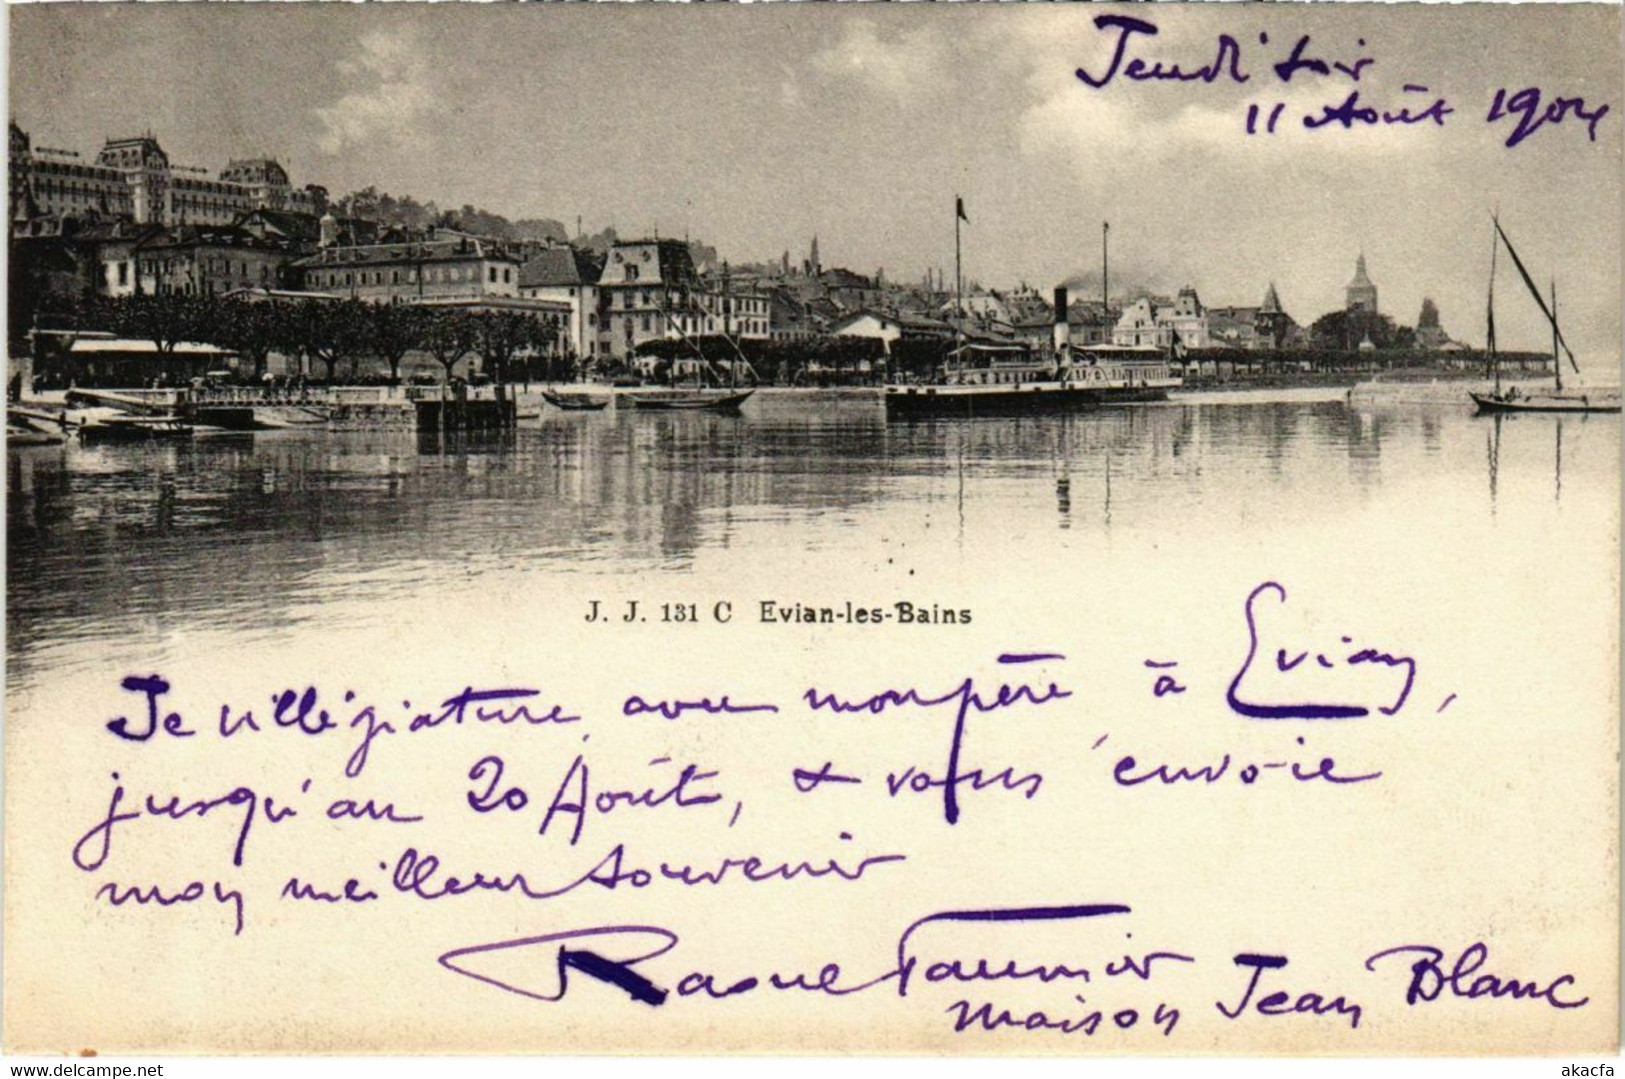 Jeudi soir
11 Août 1904
J. J. 131 C Evian-les-Bains
Je villégiature avec mon père à Evian,
jusqu'au 20 Août, & vous envoie
mon meilleur souvenir
Raoul Faunier
maison Jean Blanc
delcampe.net
akacfa